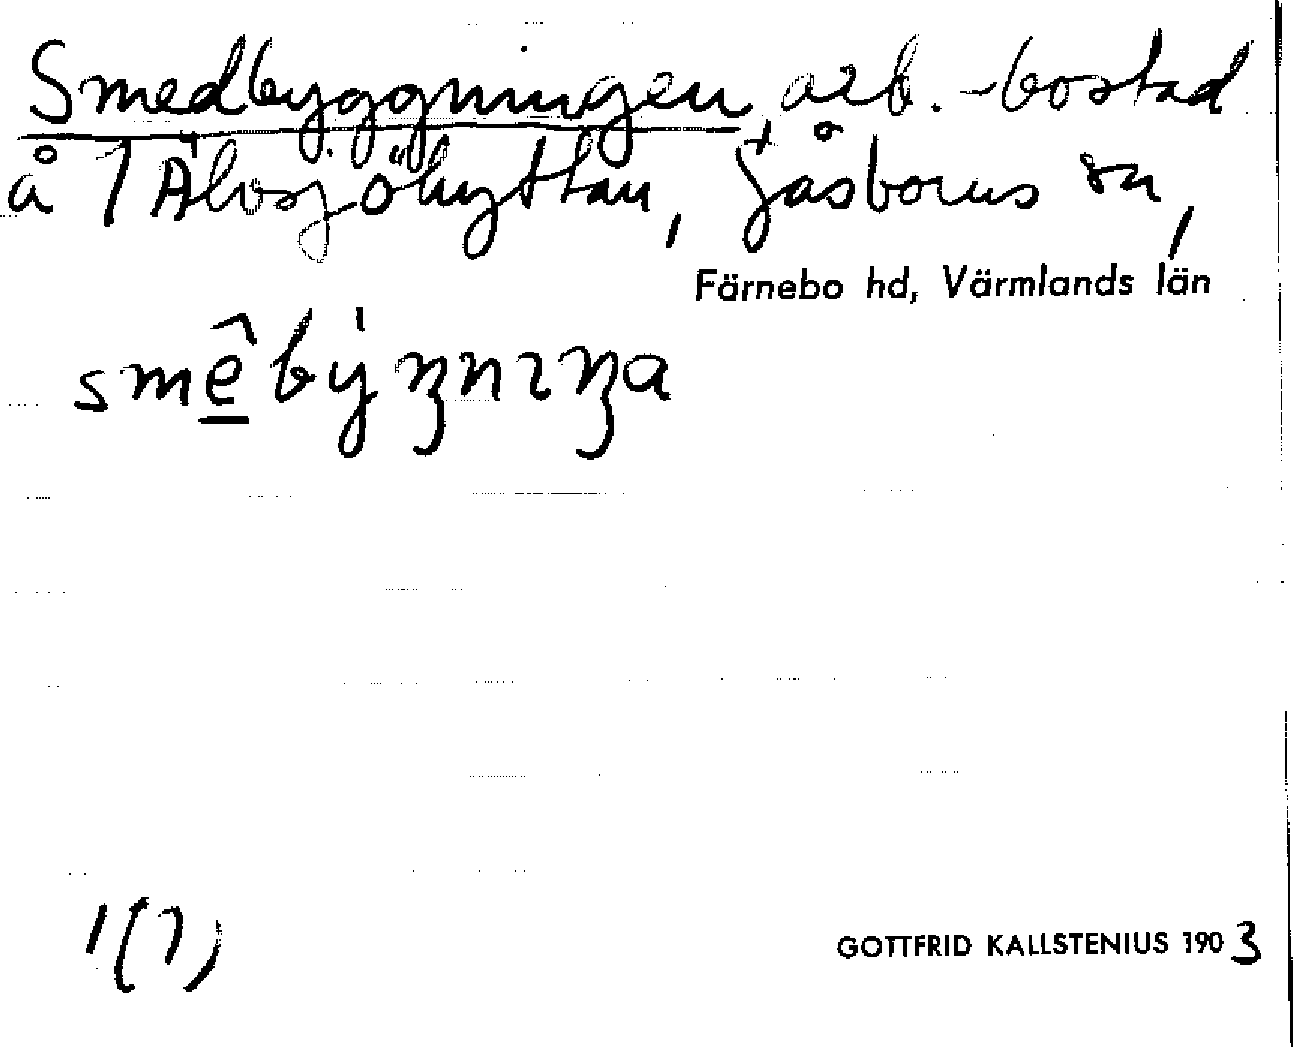 Smedbyggningen, arb.-bostad
å 1 Älvsjöhyttan, Gåsborns sn,
Färnebo hd, Värmlands län
smê̱bẏŋnıŋa
1(1)
GOTTFRID KALLSTENIUS 1903